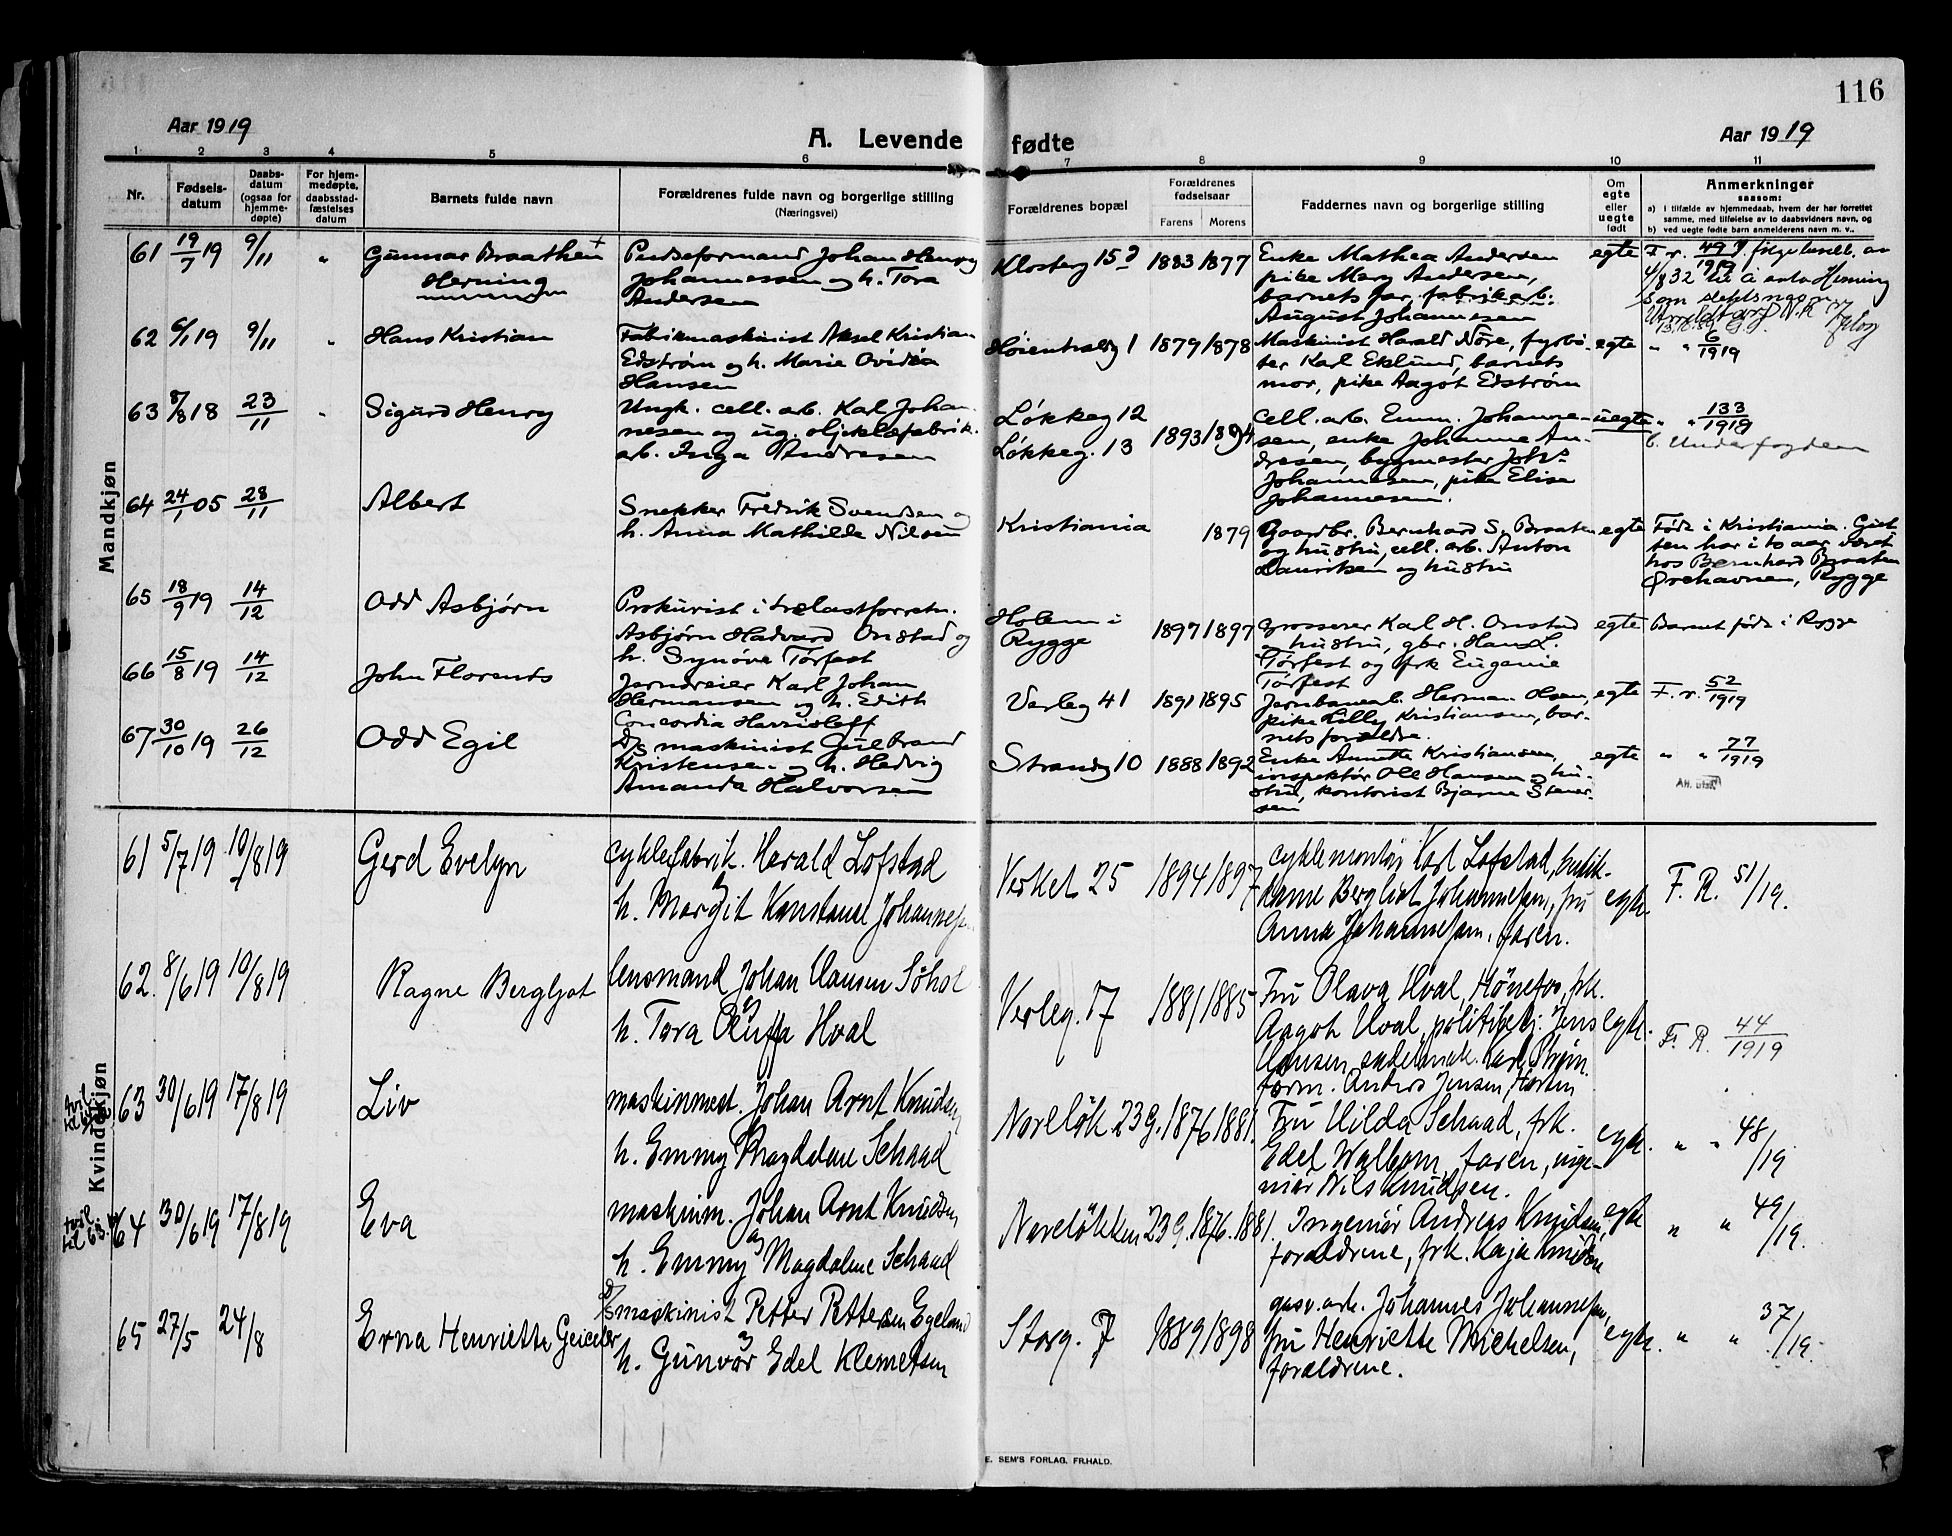 116
Aar 1919
A. Levende fødte
Aar 1919
1 2 3 4 5 6 7 8 9 10 11
Nr.
Fødsels-
datum
Daabs-
datum
(ogsaa for
hjemme-
døpte)
For hjem-
medøpte,
daabsstad-
fæstelses
datum
Barnets fulde navn
Forældrenes fulde navn og borgerlige stilling
(Næringsvei)
Forældrenes bopæl
Forældrenes
fødselsaar
Farens Morens
Faddernes navn og borgerlige stilling
Om
egte
eller
uegte
født
Anmerkninger
saasom:
a) i tilfælde av hjemmedaab, hvem der har forrettet
samme, med tilføielse av to daabsvidners navn, og
b) ved uegte fødte barn anmelderens navn m. v..
Mandkjøn
61 19/7 19 9/11 "
Gunnar Braathen +
Herning
Pudseformand Johan Henry
Johannessen og h. Tora
Andersen
Klosterg 15d 1883 1877
Enke Mathea Andersen
pike Mary Andersen,
barnets far, fabrikarb.
August Johannesen
egte
F. r. 49/1919
4/8 32 til å anta Herning
som slektsnavn
62 6/1 19 9/11 "
Hans Kristian
Fabrikmaskinist Aksel Kristian
Edstrøm og h. Marie Ovidia
Hansen
Høienhaldg 1 1879 1878
Maskinist Harald Nöre, fyrbø-
ter Karl Eklund, barnets
mor, pike Aagot Edstrøm
egte " " 6/1919
63 8/8 18 23/11 "
Sigurd Henry
Ungk. cell. arb. Karl Johan-
nesen og ug. oljeklæfabrik.
arb. Inga Andresen
Løkkeg 12
Løkkeg. 13
1893 1894
Cell. arb. Emm. Johanne-
sen, enke Johanne An-
dresen, bygmester Johs
Johannesen, pike Elise
Johannesen.
uegte " " 133/1919
b. Underfogden
64 24/1 05 28/11
Albert
Snekker Fredrik Svendsen og
h. Anna Mathilde Nilsen
Kristiania 1879
Gaardbr. Bernhard S. Braaten
og hustru, cell. arb. Anton
Lauritsen og hustru
egte
Født i Kristiania. Gut-
ten har i to aar været
hos Bernhard Braaten
Ørehavnen, Rygge
65 18/9 19 14/12
Odd Asbjørn
Prokurist i trælastforretn.
Asbjørn Hadvard Onstad og
h. Synöve Tørfest
Holem i
Rygge
1897 1897
Grosserer Karl H. Onstad
og hustru, gbr. Hans L.
Tørfest og frk Eugenie
Tørfest
egte
Barnet født i Rygge
66 15/8 19 14/12
John Florents
Jerndreier Karl Johan
Hermansen og h. Edith
Concordia
Verleg 41 1891 1895
Jernbanearb. Herman Olsen,
pike Lilly Kristiansen, bar-
nets forældre.
egte F. r. 52/1919
67 30/10 19 26/12
Odd Egil
D/s maskinist Gulbrand
Kristensen og h. Hedvig
Amanda Halvorsen
Strandg 10 1888 1892
Enke Annette Kristiansen
inspektør Ole Hansen og hu-
stru, kontorist Bjarne Stener-
sen
egte " " 77/1919
Att. utst.
Kvindekjøn
61 5/7 19 10/8 19
Gerd Evelyn
cyklefabrik. Harald Lofstad
og
h. Margit Konstanse Johannesen
Verket 25 1894 1897
cyklemontör Karl Lofstad, butik-
dame Bergliot Johannesen, fru
Anna Johannesen, faren.
egte. F. R. 51/19.
62. 8/6 19 10/8 19
Ragne Bergljot
lensmand Johan Hansen Söhol
og
h. Tora Oluffa Hval
Verleg. 17 1881 1885
Fru Olava Hval, Hönefos, frk.
Aagot Hval, politibetj. Jens
Hansen, sadelmak. Karl
form. Anders Jensen, Horten
egte. F. R. 44/1919
tvil.
til 64
63 30/6 19 17/8 19
Liv
maskinmest. Johan Arnt Knudsen
h. Emmy Magdalene Schaad
Noreløk 23 g. 1876 1881.
Fru Hilda Schaad, frk.
Edel Walbom, faren, inge-
niör Nils Knudsen.
egte. " " 48/19
tvil
til 63.
64 30/6 19 17/8 19
Eva
maskinm. Johan Arnt Knudsen
og
h. Emmy Magdalene Schaad
Noreløkken 23 g. 1876. 1881.
Ingeniör Andreas Knudsen,
forældrene, frk. Kaja Knudsen
egte " " 49/19.
65 27/5 24/8
Erna Henriette Geicler
D/s maskinist Petter Pettersen Egeland
og
h. Gunvor Edel Klemetsen
Storg. 7 1889 1898
gasv. arb. Johannes Johannesen,
fru Henriette Michelsen,
forældrene.
egte. " " 37/19.
E. SEM'S FORLAG, FR.HALD.